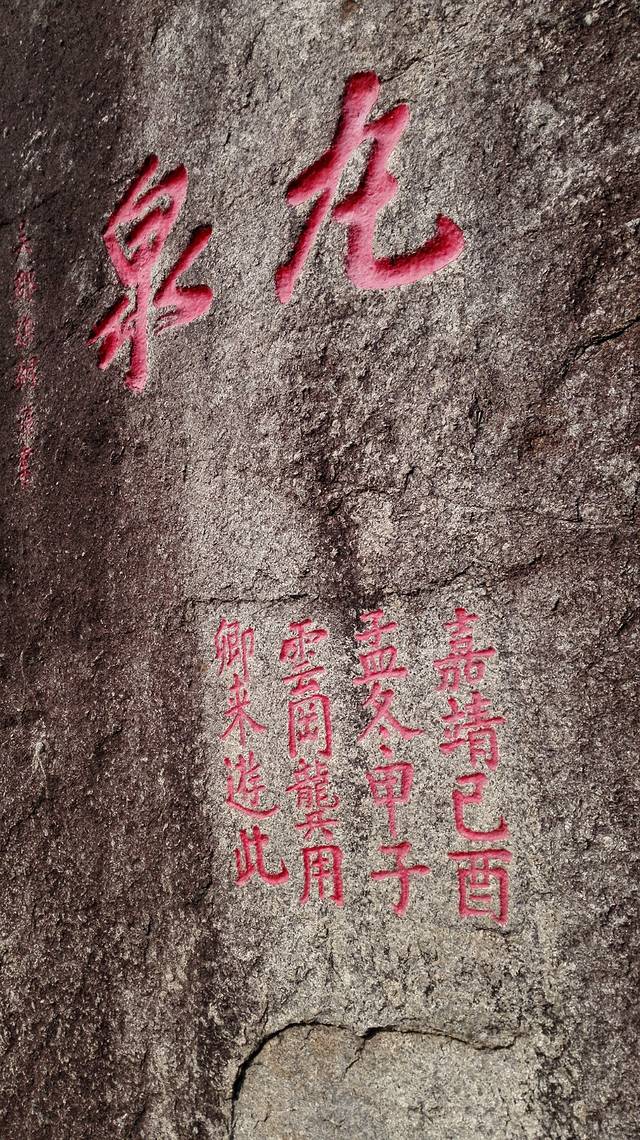 九泉
嘉靖己酉
孟冬甲子
雲岡龔用
卿来遊此